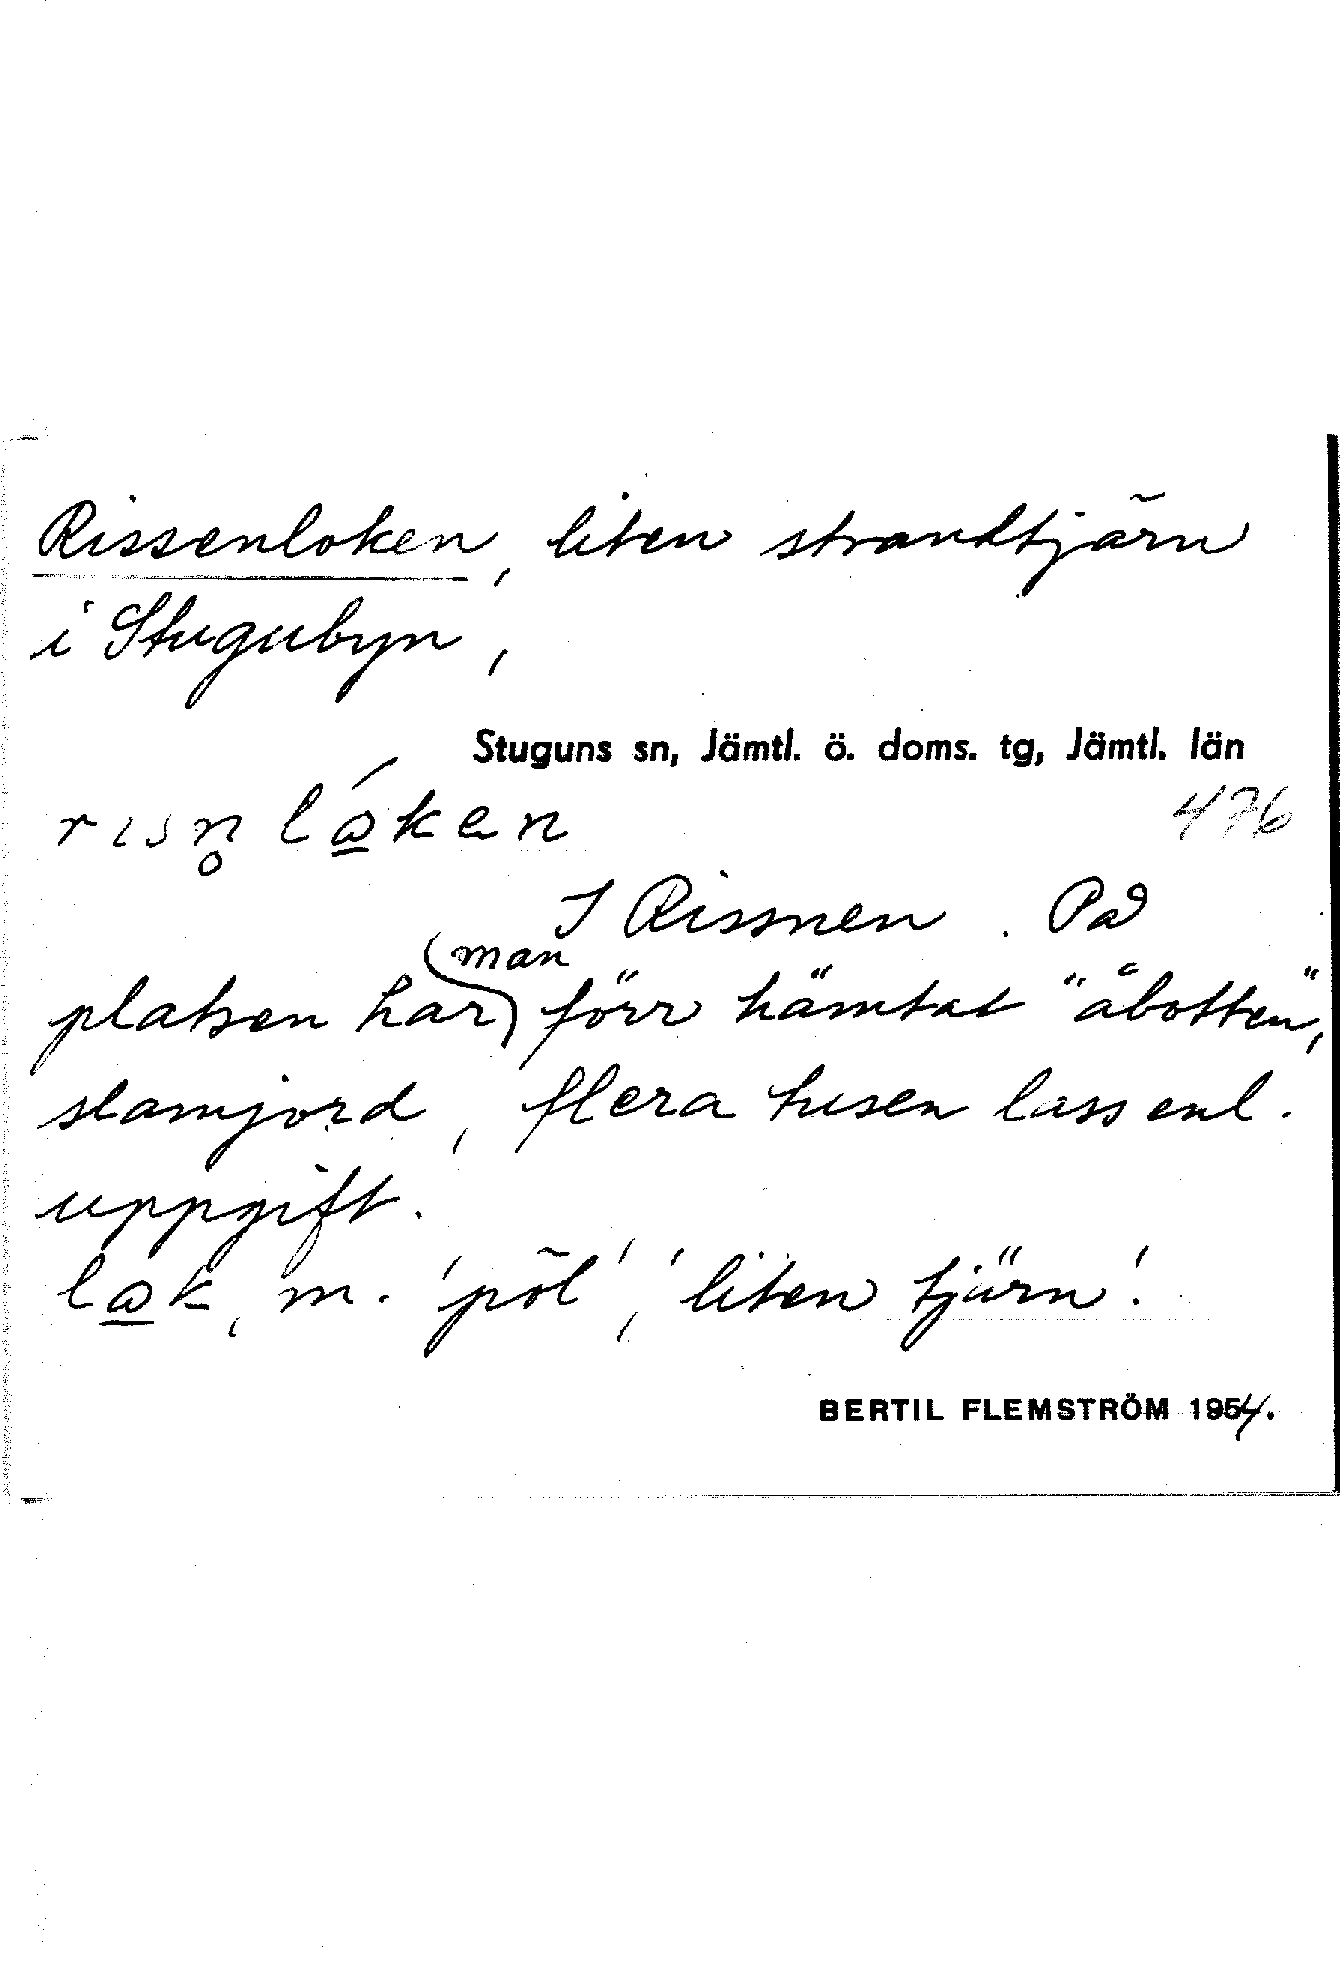 Rissenloken, liten strandtjärn
i Stugubyn,
Stuguns sn, Jämtl. ö. doms. tg, Jämtl. län
rısn̥ lǻken
476
I Rissnen. På
platsen har man förr hämtat "åbotten",
slamjord, flera tusen lass enl.
uppgift.
låk, m. 'pöl', 'liten tjärn'.
BERTIL FLEMSTRÖM 1954.